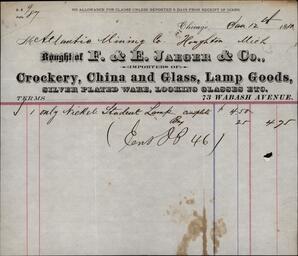 NO ALLOWANCE FOR CLAIMS UNLESS REPORTED 5 DAYS FROM RECEIPT OF GOODS.
Chicago, Jan 12th 18
M Atlantic Mining Co Houghton Mich
Bought of F. & E. JAEGER & CO.,
IMPORTERS OF
Crockery, China and Glass, Lamp Goods,
SILVER PLATED WARE, LOOKING GLASSES ETC.
TERMS 73 WABASH AVENUE.
1 only Nickel Student Lamp complete $ 4.50
Box 25 4 75
(Ent JB 46)